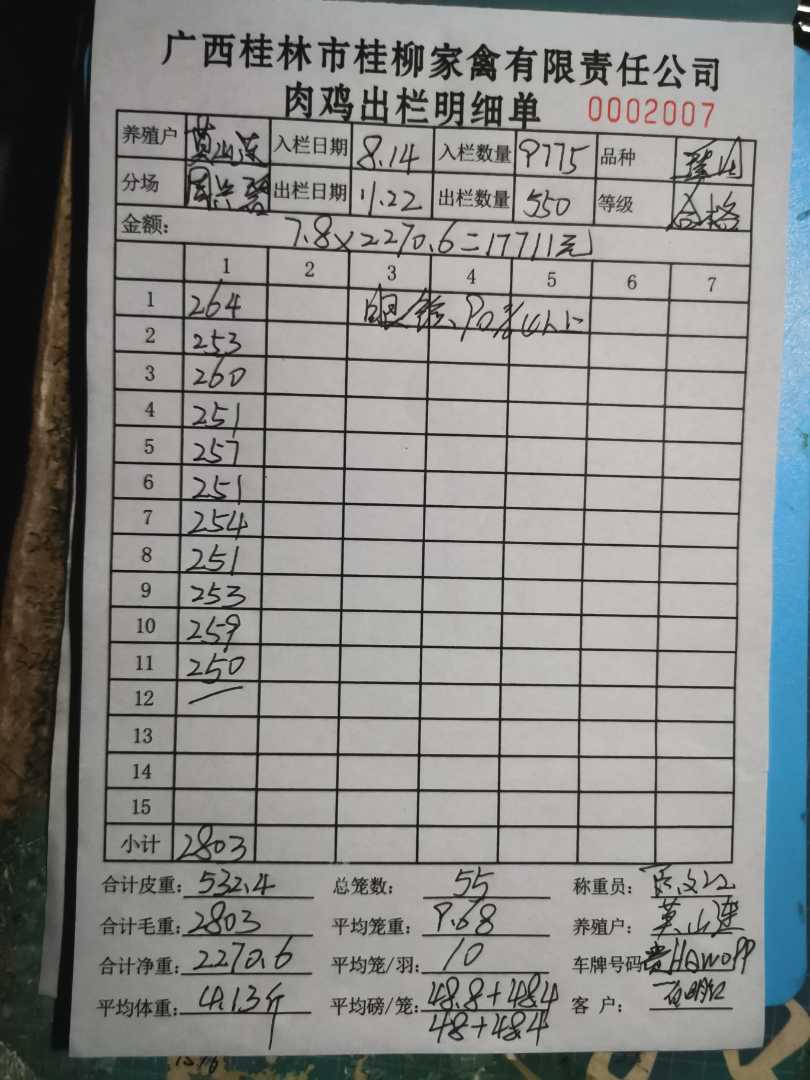 广西桂林市桂柳家禽有限责任公司
肉鸡出栏明细单 0002007
养殖户 莫山连 入栏日期 8.14 入栏数量 9775 品种
分场 出栏日期 11.22 出栏数量 550 等级 合格
金额: 7.8×2270.6=17711元
1 2 3 4 5 6 7
1 264 90%以上
2 253
3 260
4 251
5 257
6 251
7 254
8 251
9 253
10 259
11 250
12
13
14
15
小计 2803
合计皮重: 532.4 总笼数: 55 称重员:
合计毛重: 2803 平均笼重: 9.68 养殖户: 莫山连
合计净重: 2270.6 平均笼/羽: 10 车牌号码
平均体重: 4.13斤 平均磅/笼: 48.8+48.4 客 户:
48+48.4